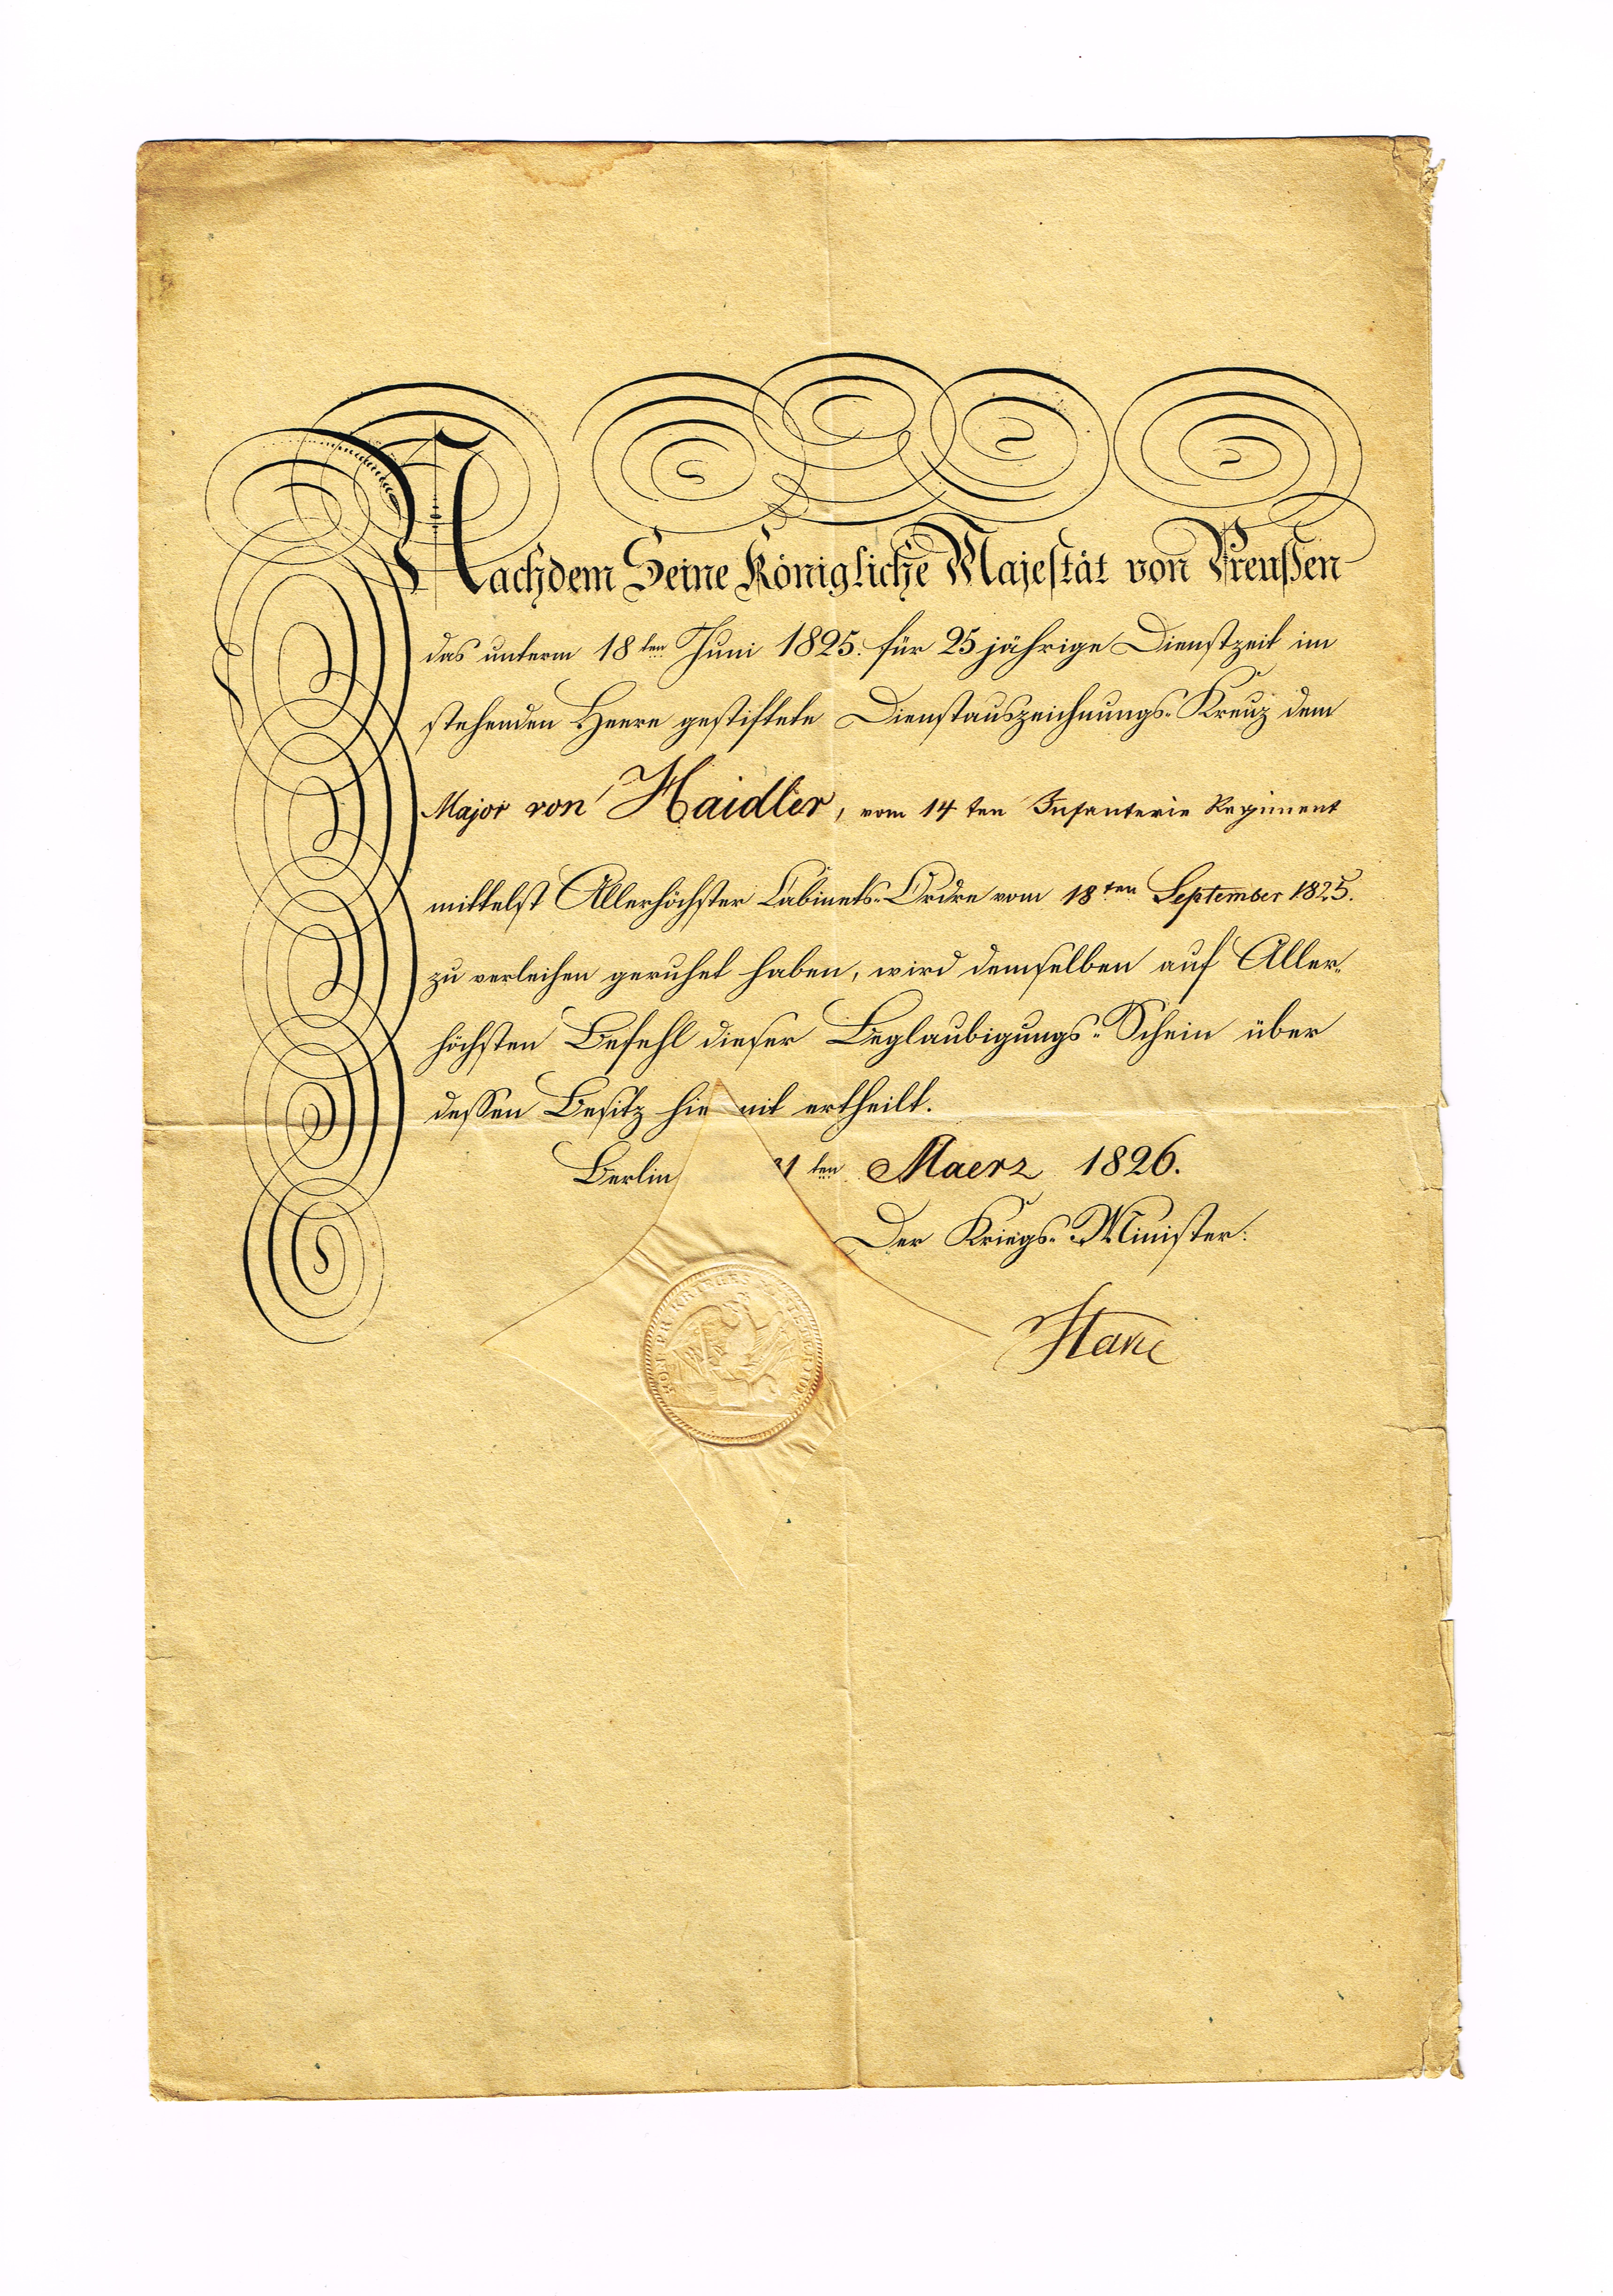 Nachdem Seine Königliche Majestät von Preußen
das unterm 18ten Juni 1825. für 25 jährige Dienstzeit im
stehenden Heere gestiftete Dienstauszeichnungs-Kreuz dem
Major von Haidler, vom 14ten Infanterie Regiment
mittelst Allerhöchster Cabinets-Ordre vom 18ten September 1825.
zu verleihen geruhet haben, wird demselben auf Aller-
höchsten Befehl dieser Beglaubigungs-Schein über
dessen Besitz hie mit ertheilt.
Berlin 1ten Maerz 1826.
Der Kriegs-Minister.